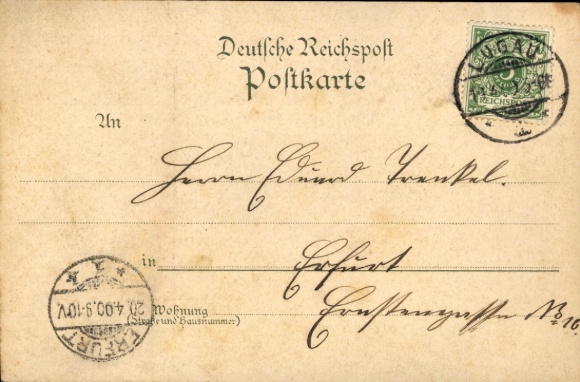 Deutsche Reichspost
Postkarte
LUGAU
5
REICHSPOST
An
Herrn Eduard Trenkel.
in Erfurt
Wohnung
(Straße und Hausnummer)
No 16.
ERFURT
20.4.00.9-10V.
* 1 *